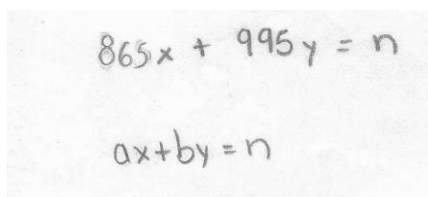 865x + 995y = n
ax+by=n